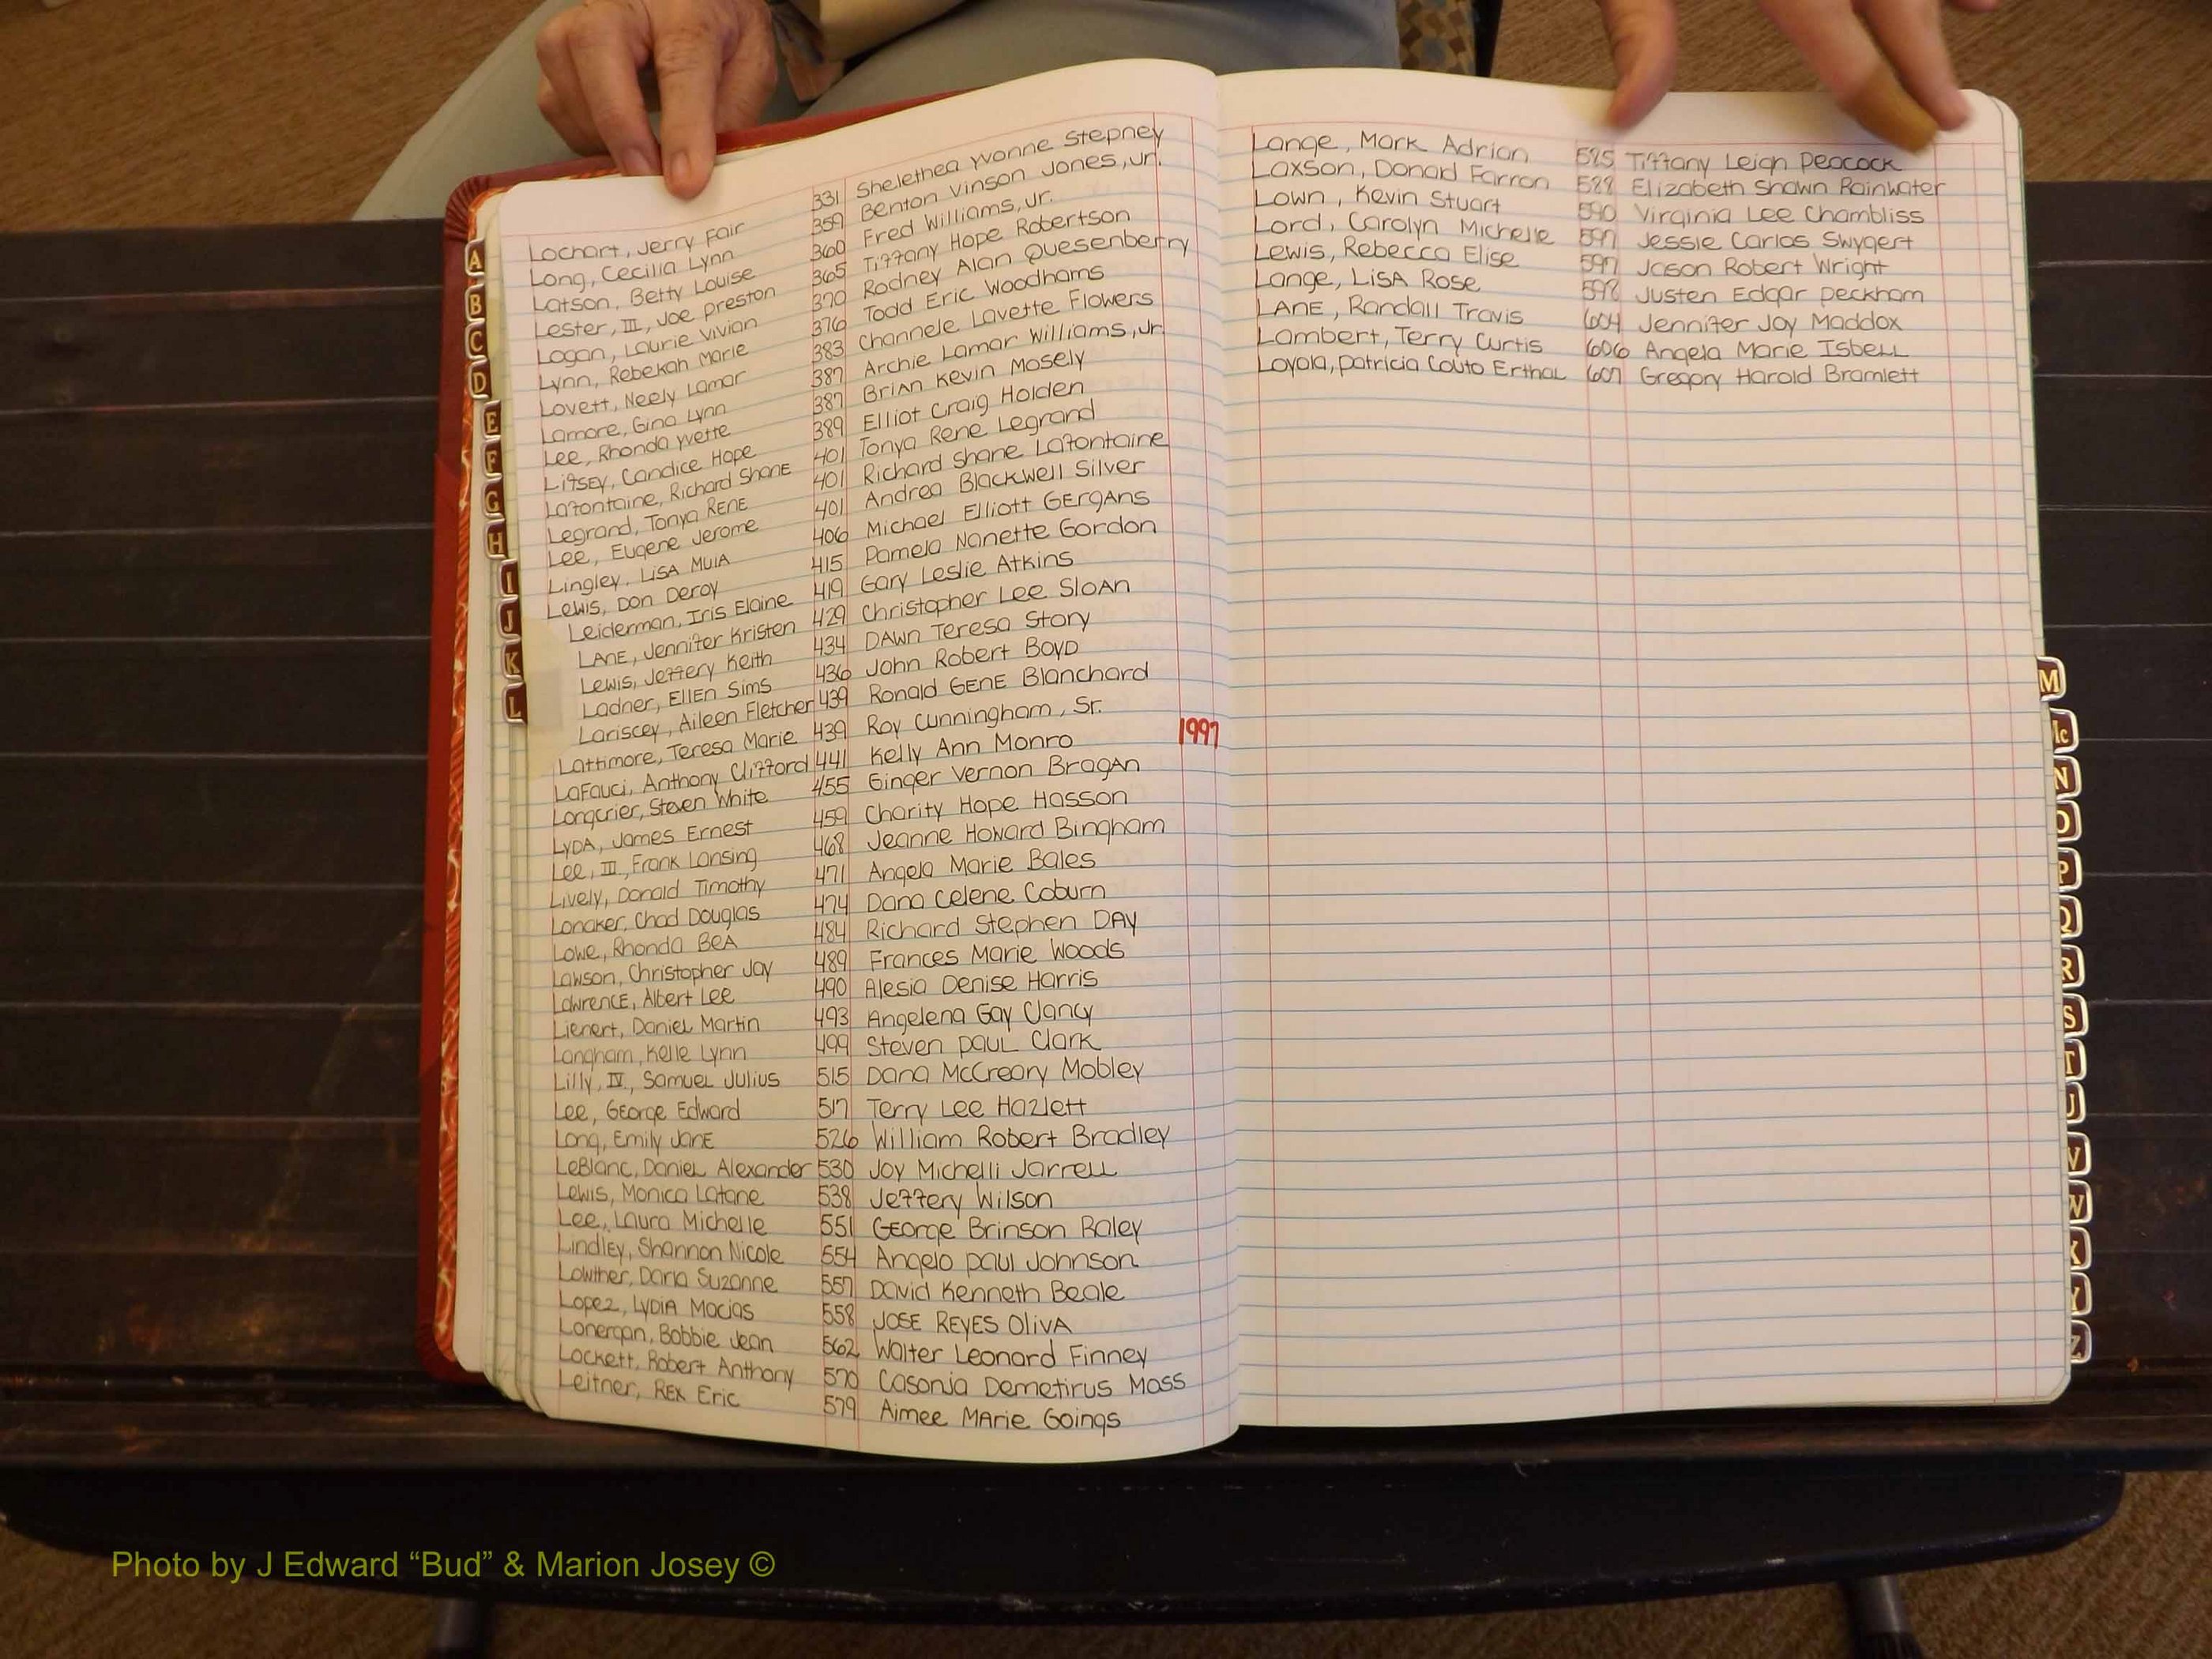 Lochart, Jerry Fair 331 Shelethea Yvonne Stepney
Long, Cecilia Lynn 359 Benton Vinson Jones, Jr.
Latson, Betty Louise 360 Fred Williams, Jr.
Lester, III, Joe Preston 365 Tiffany Hope Robertson
Logan, Laurie Vivian 370 Rodney Alan Quesenberry
Lynn, Rebekah Marie 376 Todd Eric Woodhams
Lovett, Neely Lamar 383 Channele Lavette Flowers
Lamore, Gina Lynn 387 Archie Lamar Williams, Jr
Lee, Rhonda Yvette 387 Brian Kevin Mosely
Litsey, Candice Hope 389 Elliot Craig Holden
Lafontaine, Richard Shane 401 Tonya Rene Legrand
Legrand, Tonya Rene 401 Richard Shane Lafontaine
Lee, Eugene Jerome 401 Andrea Blackwell Silver
Lingley, Lisa Muia 406 Michael Elliott Gergans
Lewis, Don Deroy 415 Pamela Nanette Gordon
Leiderman, Iris Elaine 419 Gary Leslie Atkins
Lane, Jennifer Kristen 429 Christopher Lee Sloan
Lewis, Jeffery Keith 434 Dawn Teresa Story
Ladner, Ellen Sims 436 John Robert Boyd
Lariscey, Aileen Fletcher 439 Ronald Gene Blanchard
Lattimore, Teresa Marie 439 Roy Cunningham, Sr.
LaFauci, Anthony Clifford 441 Kelly Ann Monro 1997
Longcrier, Steven White 455 Ginger Vernon Bragan
Lyda, James Ernest 459 Charity Hope Hasson
Lee, III, Frank Lansing 468 Jeanne Howard Bingham
Lively, Donald Timothy 471 Angela Marie Bales
Lonaker, Chad Douglas 474 Dana Celene Coburn
Lowe, Rhonda Bea 484 Richard Stephen Day
Lawson, Christopher Jay 489 Frances Marie Woods
Lawrence, Albert Lee 490 Alesia Denise Harris
Lienert, Daniel Martin 493 Angelena Gay Clancy
Langham, Kelle Lynn 499 Steven Paul Clark
Lilly, IV, Samuel Julius 515 Dana McCreary Mobley
Lee, George Edward 517 Terry Lee Hazlett
Long, Emily Jane 526 William Robert Bradley
LeBlanc, Daniel Alexander 530 Joy Michelli Jarrell
Lewis, Monica Latane 538 Jeffery Wilson
Lee, Laura Michelle 551 George Brinson Raley
Lindley, Shannon Nicole 554 Angelo Paul Johnson
Lowther, Daria Suzanne 557 David Kenneth Beale
Lopez, Lydia Macias 558 Jose Reyes Oliva
Lonergan, Bobbie Jean 562 Walter Leonard Finney
Lockett, Robert Anthony 570 Casonja Demetirus Moss
Leitner, Rex Eric 579 Aimee Marie Goings
Lange, Mark Adrian 585 Tiffany Leigh Peacock
Laxson, Donald Farron 588 Elizabeth Shawn Rainwater
Lown, Kevin Stuart 590 Virginia Lee Chambliss
Lord, Carolyn Michelle 597 Jessie Carlos Swygert
Lewis, Rebecca Elise 597 Jason Robert Wright
Lange, Lisa Rose 598 Justen Edgar Peckham
Lane, Randall Travis 604 Jennifer Joy Maddox
Lambert, Terry Curtis 606 Angela Marie Isbell
Loyola, Patricia Couto Erthal 607 Gregory Harold Bramlett
A
B
C
D
E
F
G
H
I
J
K
L
M
Mc
N
O
P
Q
R
S
T
U
V
W
X
Y
Z
Photo by J Edward “Bud” & Marion Josey ©